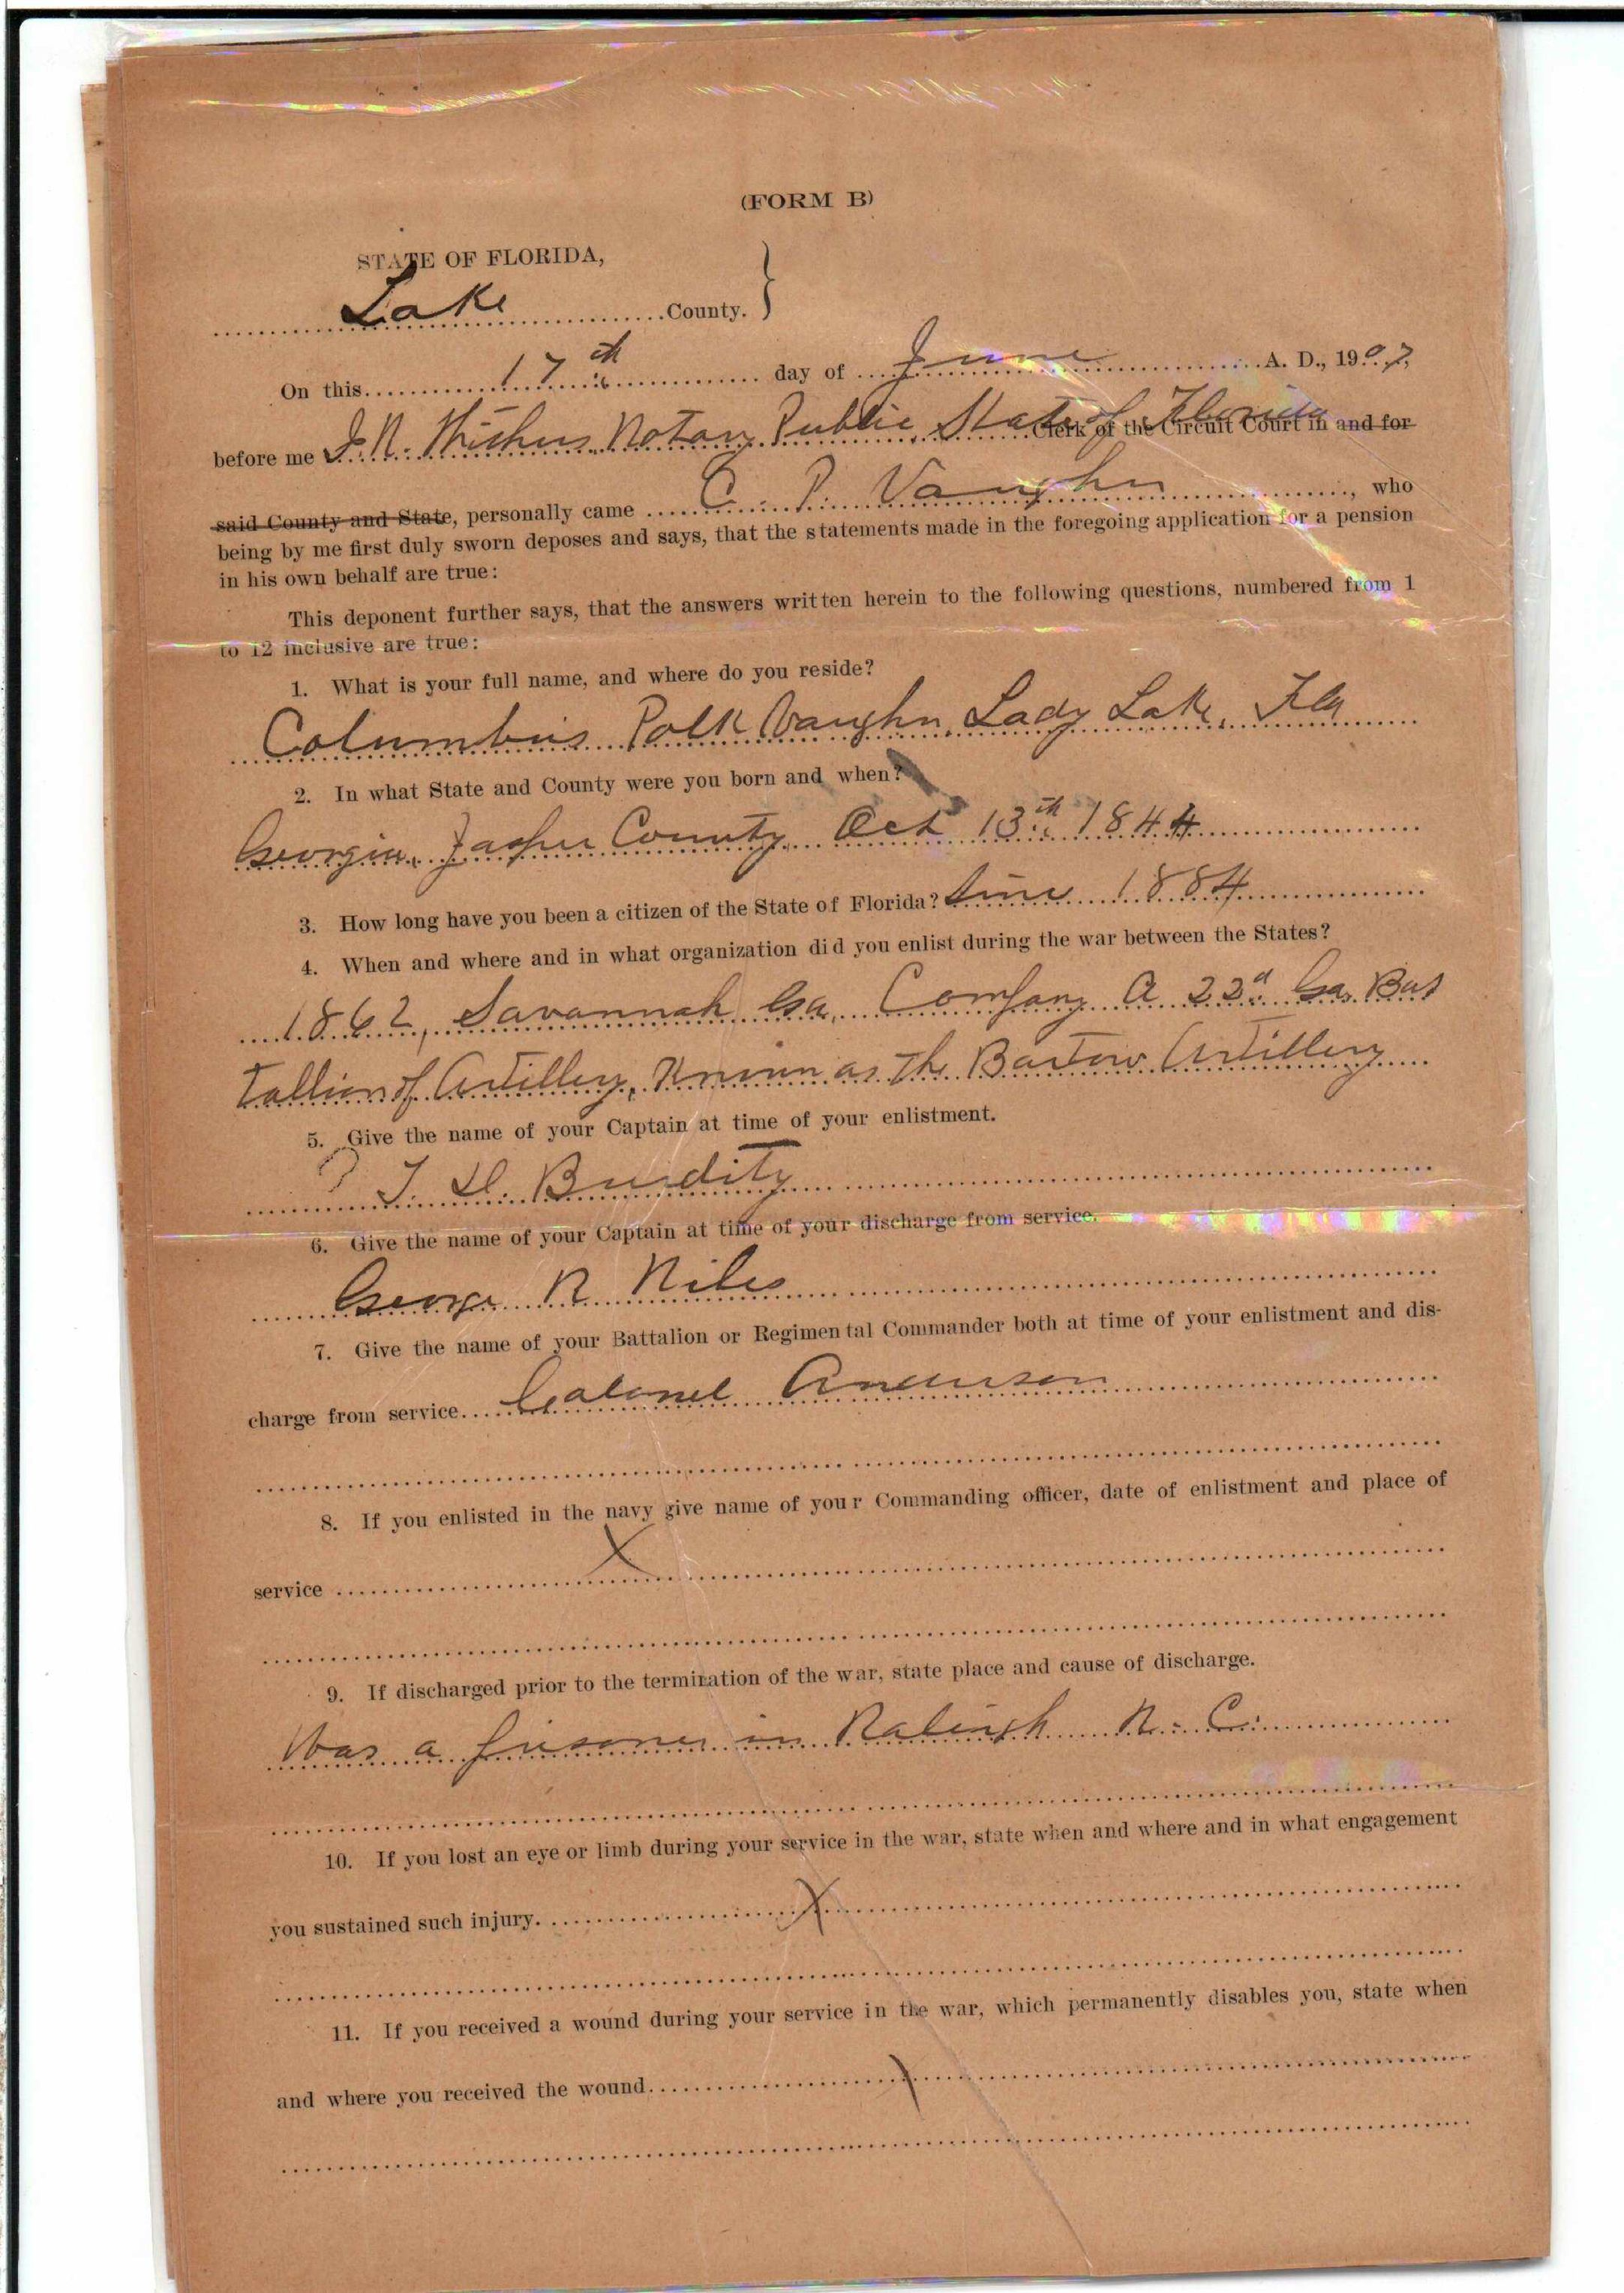 (FORM B)
STATE OF FLORIDA,
Lake County. }
On this 17th day of June A. D., 1907,
before me J. N. Notary Public, State of Florida Clerk of the Circuit Court in and for
said County and State, personally came C. P. Vaughn, who
being by me first duly sworn deposes and says, that the statements made in the foregoing application for a pension
in his own behalf are true:
This deponent further says, that the answers written herein to the following questions, numbered from 1
to 12 inclusive are true:
1. What is your full name, and where do you reside?
Columbus Polk Vaughn, Lady Lake, Fla
2. In what State and County were you born and when?
Georgia, Jasper County, Oct 13th 1844
3. How long have you been a citizen of the State of Florida? Since 1884
4. When and where and in what organization did you enlist during the war between the States?
1862, Savannah Ga, Company A 22d Ga Bat
tallion of Artillery, Known as The Bartow Artillery
5. Give the name of your Captain at time of your enlistment.
? T. D. Burdity
6. Give the name of your Captain at time of your discharge from service.
George R Niles
7. Give the name of your Battalion or Regimental Commander both at time of your enlistment and dis-
charge from service Colonel Anderson
8. If you enlisted in the navy give name of your Commanding officer, date of enlistment and place of
service X
9. If discharged prior to the termination of the war, state place and cause of discharge.
Was a prisoner in Raleigh N. C.
10. If you lost an eye or limb during your service in the war, state when and where and in what engagement
you sustained such injury. X
11. If you received a wound during your service in the war, which permanently disables you, state when
and where you received the wound \